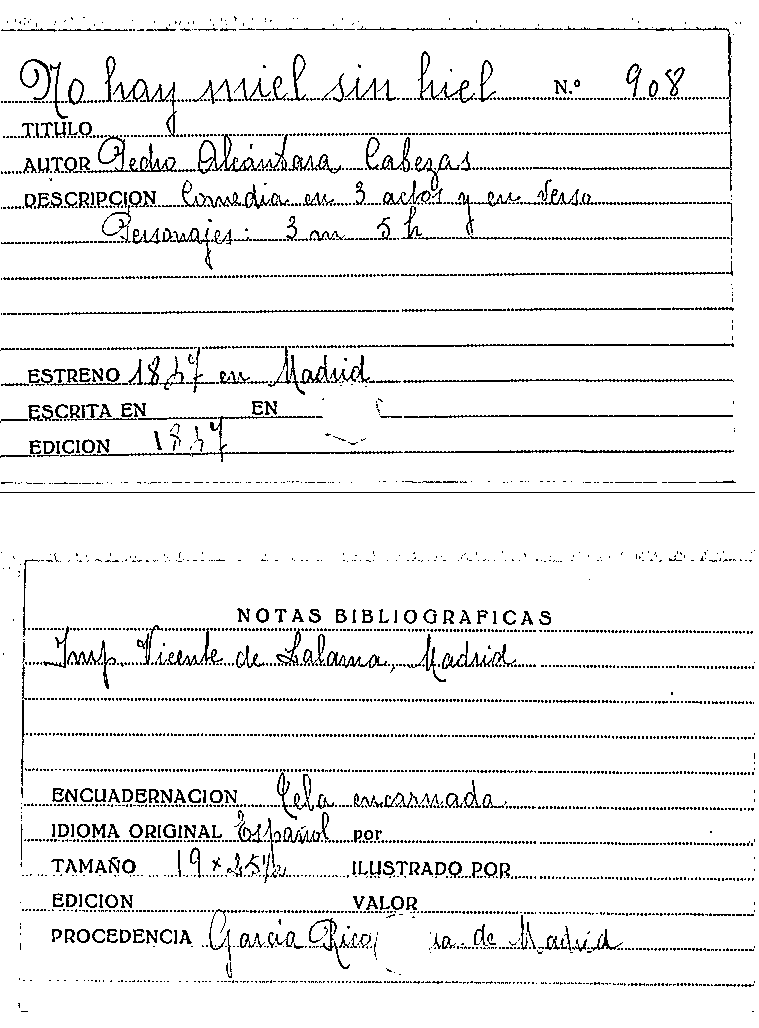 No hay miel sin hiel N.º 908
TITULO
AUTOR Pedro Alcántara Cabezas
DESCRIPCION Comedia en 3 actos y en verso
Personajes: 3 m 5 h
ESTRENO en Madrid
ESCRITA EN EN
EDICION
NOTAS BIBLIOGRAFICAS
Imp. Vicente de Lalama, Madrid
ENCUADERNACION Tela encarnada
IDIOMA ORIGINAL Español por
TAMAÑO 19 x ILUSTRADO POR
EDICION VALOR
PROCEDENCIA García Rico, de Madrid